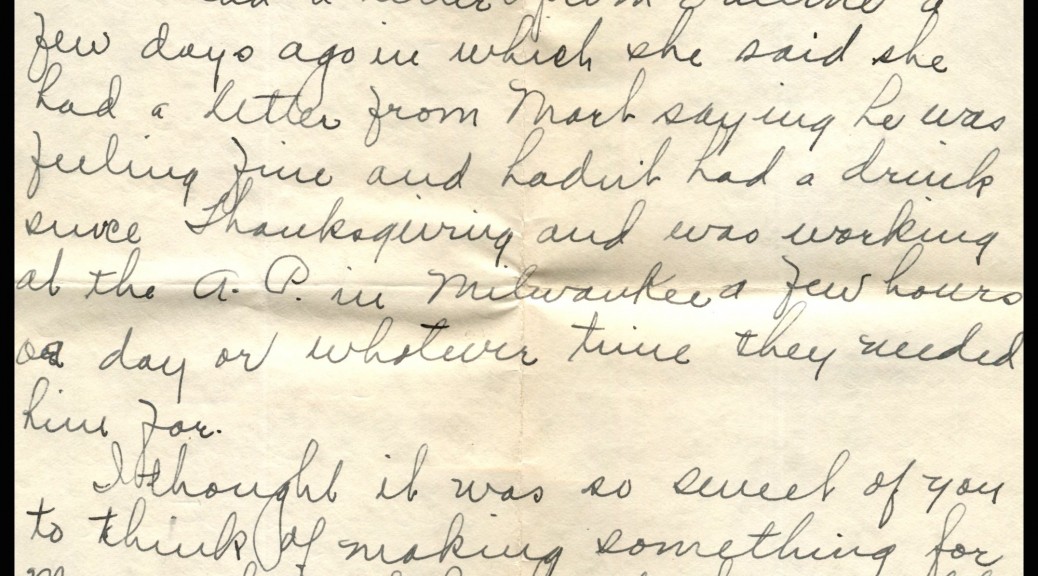 had a letter from Pauline a
few days ago in which she said she
had a letter from Mart saying he was
feeling fine and hadn't had a drink
since Thanksgiving and was working
at the A. P. in Milwaukee a few hours
a day or whatever time they needed
him for.
I thought it was so sweet of you
to think of making something for